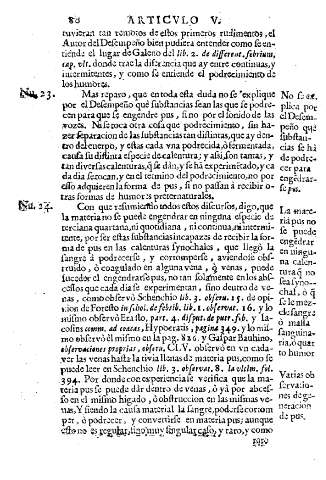 80 ARTICVLO V.
tuvieran tan remotos de estos primeros rudimentos, el
Autor del Desempeño bien pudiera entender como se en-
tiende el lugar de Galeno del lib. 2. de different. febrium,
cap. vlt. donde trae la diferancia que ay entre continuas, y
intermitentes, y como se entiende el podrecimiento de
los humores.
Nu. 23.
Mas reparo, que en toda esta duda no se explique
por el Desempeño què substancias sean las que se podre-
cen para que se engendre pus, sino por el sonido de las
vozes. Ni se toca otra cosa que podrecimiento, sin ha-
zer separacion de las substancias tan distintas, que ay den-
tro del cuerpo, y estas cada vna podrecida, ò fermentada,
causa su distinta especie de calentura; y assi, son tantas, y
tan diversas calenturas, q̃ se dàn, y se hà experimẽtado, y ca
da dia se tocan, y en el termino del podrecimiento, no por
esso adquieren la forma de pus, si no passan à recibir o-
tras formas de humores preternaturales.
No se ex-
plica por
el Desem-
peño què
substan-
cias se hã
de podre-
cer para
engẽdrar-
se pus.
Nu. 24.
Con que resumiendo todos estos discursos, digo, que
la materia no se puede engendrar en ninguna especie de
terciana quartana, ni quotidiana, ni continua, ni intermi-
tente, por ser estas substancias incapazes de recibir la for-
ma de pus en las calenturas synochales, que llegò la
sangre à podrecerse, y corromperse, aviendose obs-
truido, ò coagulado en alguna vena, ò venas, puede
suceder el engendrarse pus, no tan solamente en los abs-
cessos que cada dia se experimentan, sino dentro de ve-
nas, como observò Schenchio lib. 3. observ. 15. de opi-
nion de Foresto in schol. de febrib. lib. 1. observat. 16. y lo
mismo observò Erasto, part. 4. disput. de put. fab. y La-
cosins comm. ad coacas, Hypocratis, pagina 349. y lo mis-
mo observò el mismo en la pag. 826. y Gaspar Bauhino,
observationes propriar, observa. CLV. observò en vn cada-
ver las venas hasta la tivia llenas de materia pus, como se
puede leer en Schenchio lib. 3. observat. 8. la vltim. fol.
394. Por donde con experiencia se verifica que la ma-
teria pus se puede dàr dentro de venas, ò yà por absce-
sso en el mismo higado, ò obstruccion en las mismas ve-
nas, Y siendo la causa material la sangre, poderse corrom
per, ò podrecer, y convertirse en materia pus; aunque
esto no es regular, sino muy singular caso, y raro, y como
raro
La mate-
ria pus no
se puede
engẽdrar
en ningu-
na calen-
tura q̃ no
sea syno-
chal, ò q̃
se le mez-
cle sangre
ò massa
sanguina-
ria, ò qua
to humor
Varias ob
servatio-
nes de ge-
neracion
de pus.